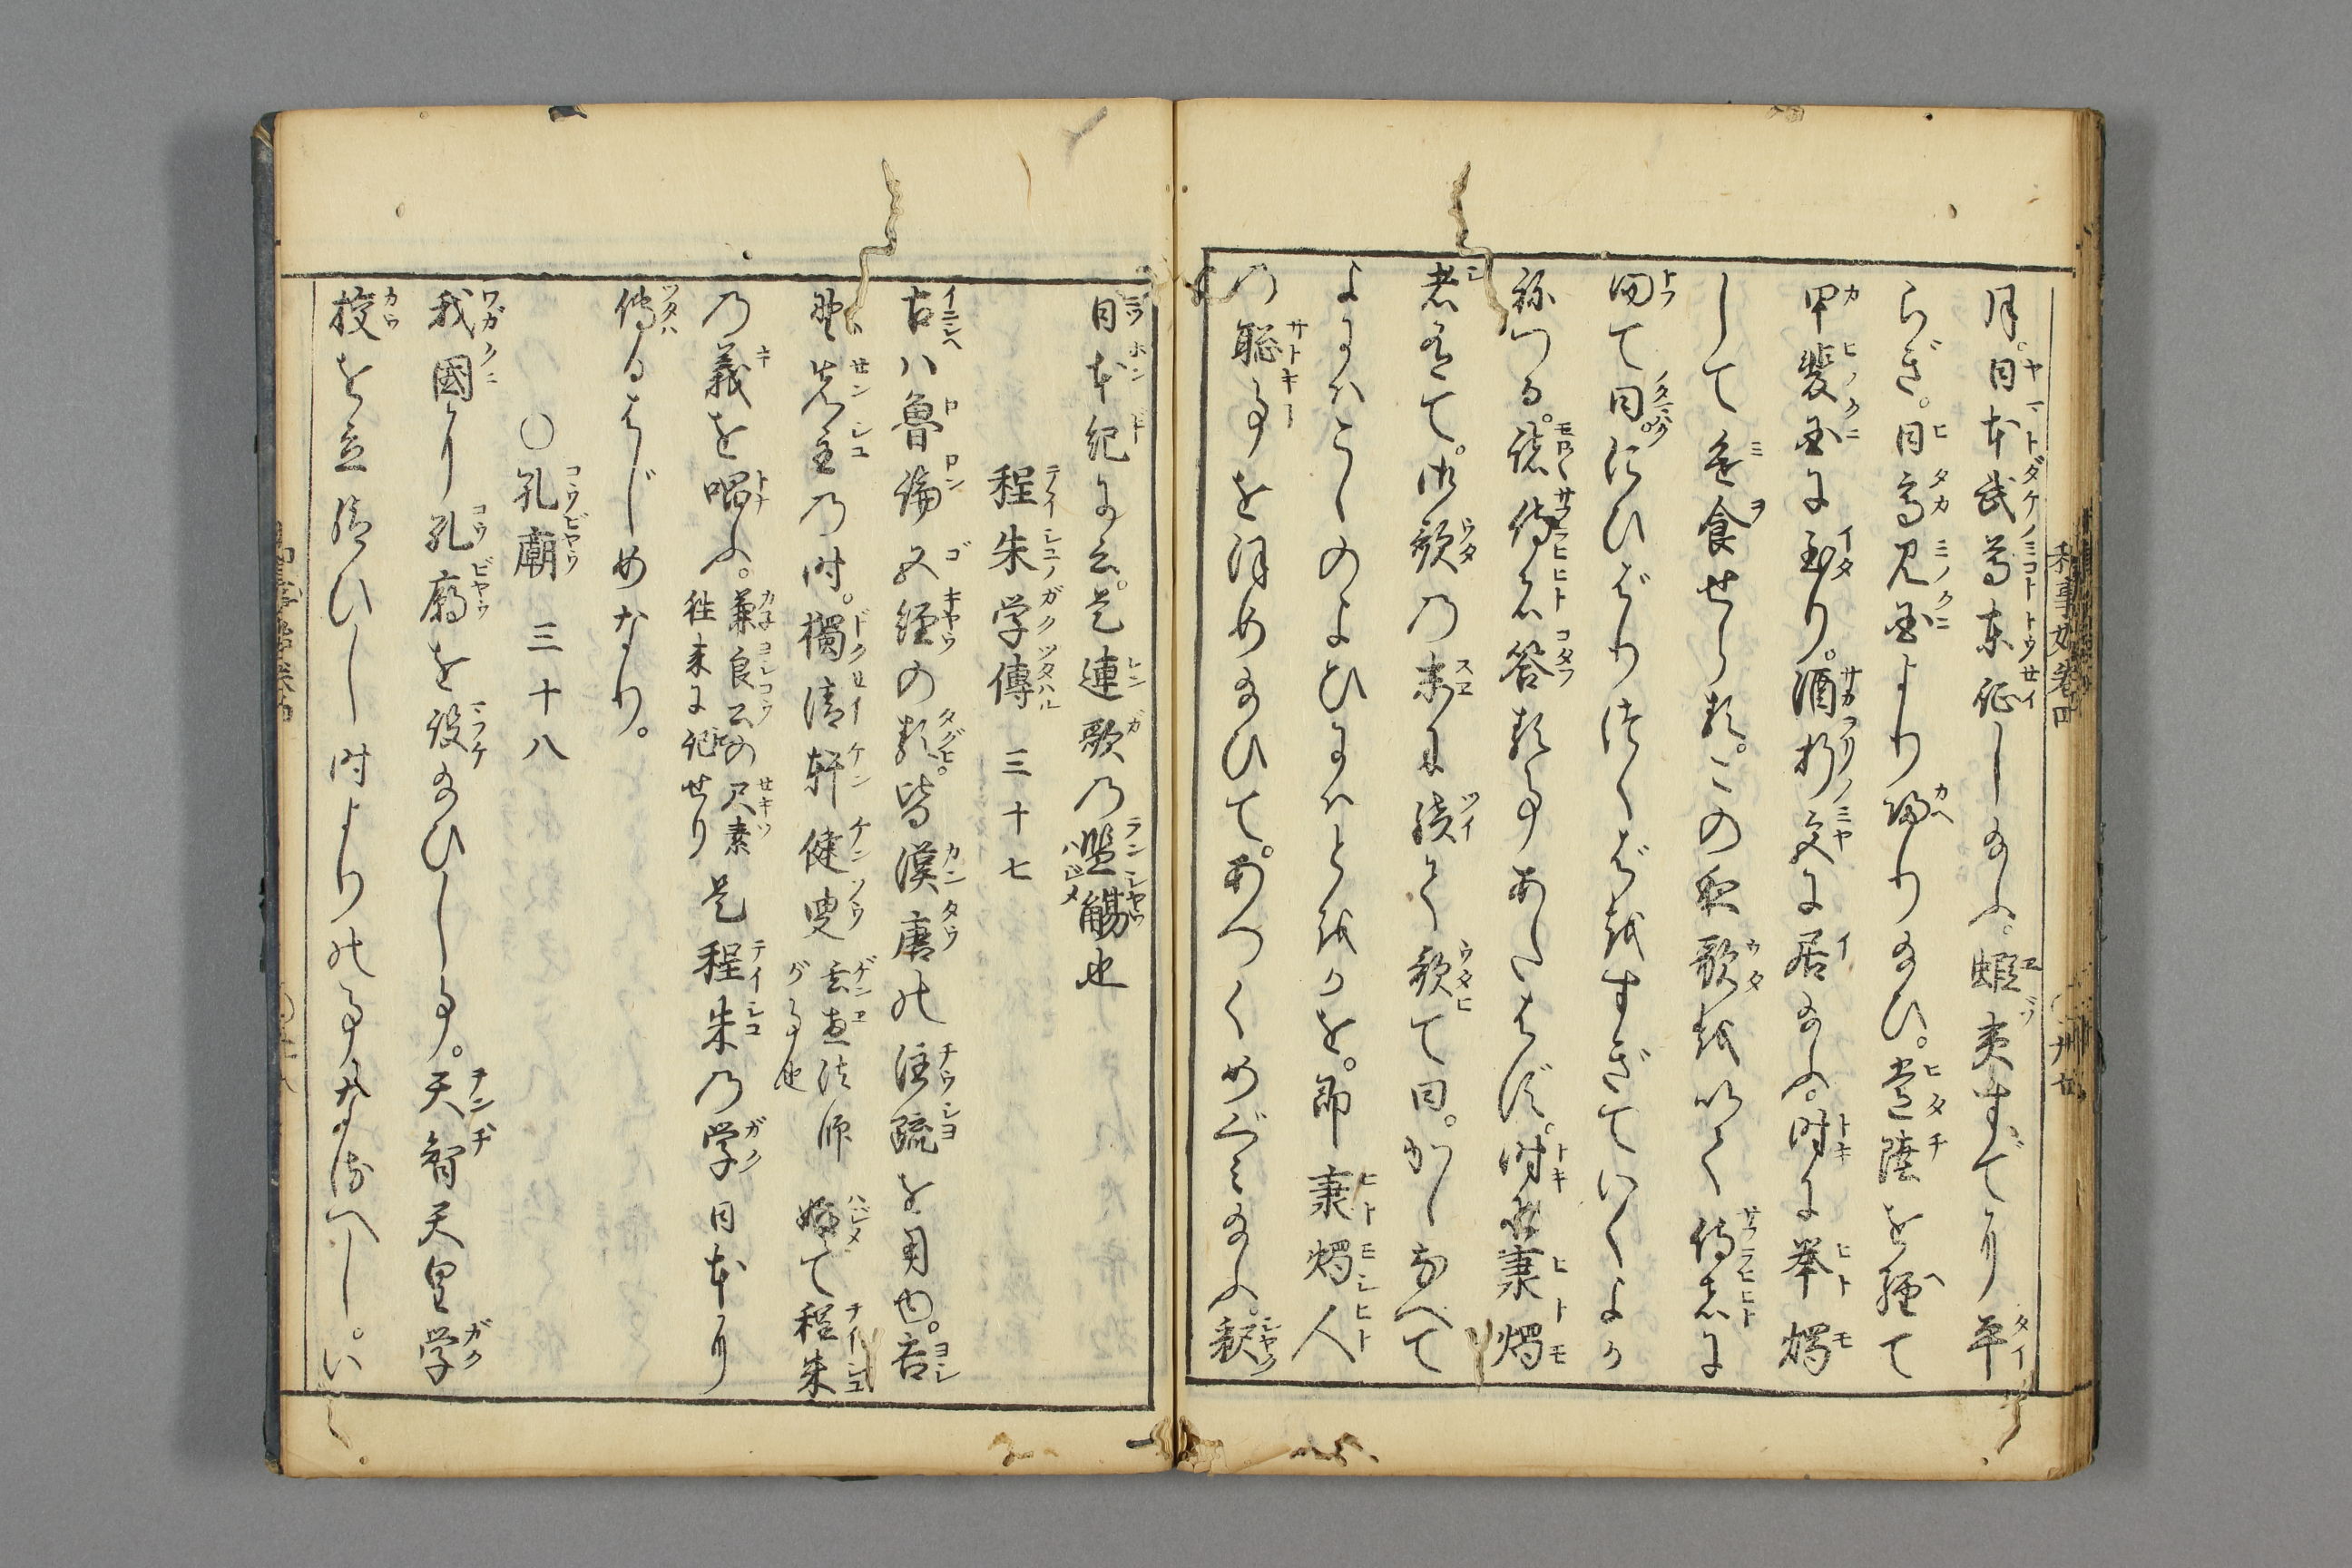 月。日本武尊東征し給ふ。蝦夷すでに平
らぎ。日高見国より帰り給ひ。常陸を経て
甲斐国に至り。酒折宮に居給ふ。時に挙燭
して進食せらる。この夜歌を以て侍者に
問て曰。にひばりつくばをすぎていくよか
ねつる。諸侍者答る事あたはず。時に秉燭
者有て。御歌の末に續て歌て曰。かゝなべて
よにはこゝのよひにはとをかを。即秉燭人
の聡事をほめ給ひて。あつくめぐみ給ふ。釈
日本紀に云。是連歌の濫觴也
程朱学傳 三十七
古ハ魯論五經の類。皆漢唐の注疏を用也。吉
野先主の時。獨清軒健叟 玄恵法師が事也 始て程朱
の義を唱ふ。兼良公の尺素往来に記せり 是程朱の学日本に
傳るはじめなり。
○孔廟 三十八
我國に孔廟を設給ひし事。天智天皇学
校を立給ひし時よりの事なるべし。い